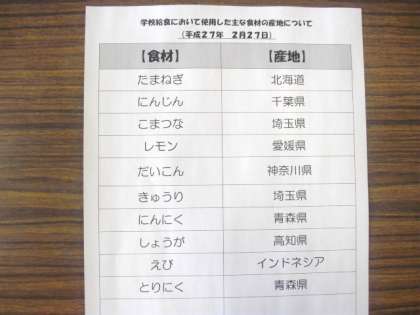 学校給食において使用した主な食材の産地について
（平成２７年　２月２７日）
【食材】 【産地】
たまねぎ 北海道
にんじん 千葉県
こまつな 埼玉県
レモン 愛媛県
だいこん 神奈川県
きゅうり 埼玉県
にんにく 青森県
しょうが 高知県
えび インドネシア
とりにく 青森県